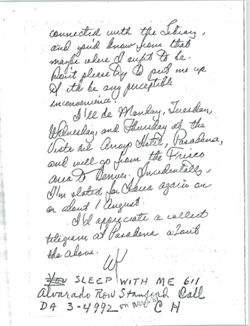 connected with the Library,
and you'd know from that
maybe where I ought to be.
Don't please try to put me up
if it'd be any perceptible
inconvenience.
I'll be Monday, Tuesday,
Wednesday, and Thursday at the
Vista del Arroyo Hotel, Pasadena,
and will go from the Frisco
area to Denver. Incidentally,
I'm slated for Texas again on
or about 1 August.
I'd appreciate a collect
telegram at Pasadena about
the above.
SLEEP WITH ME 611
Alvarado Row Stanford Call
DA 3-4992 on
C H